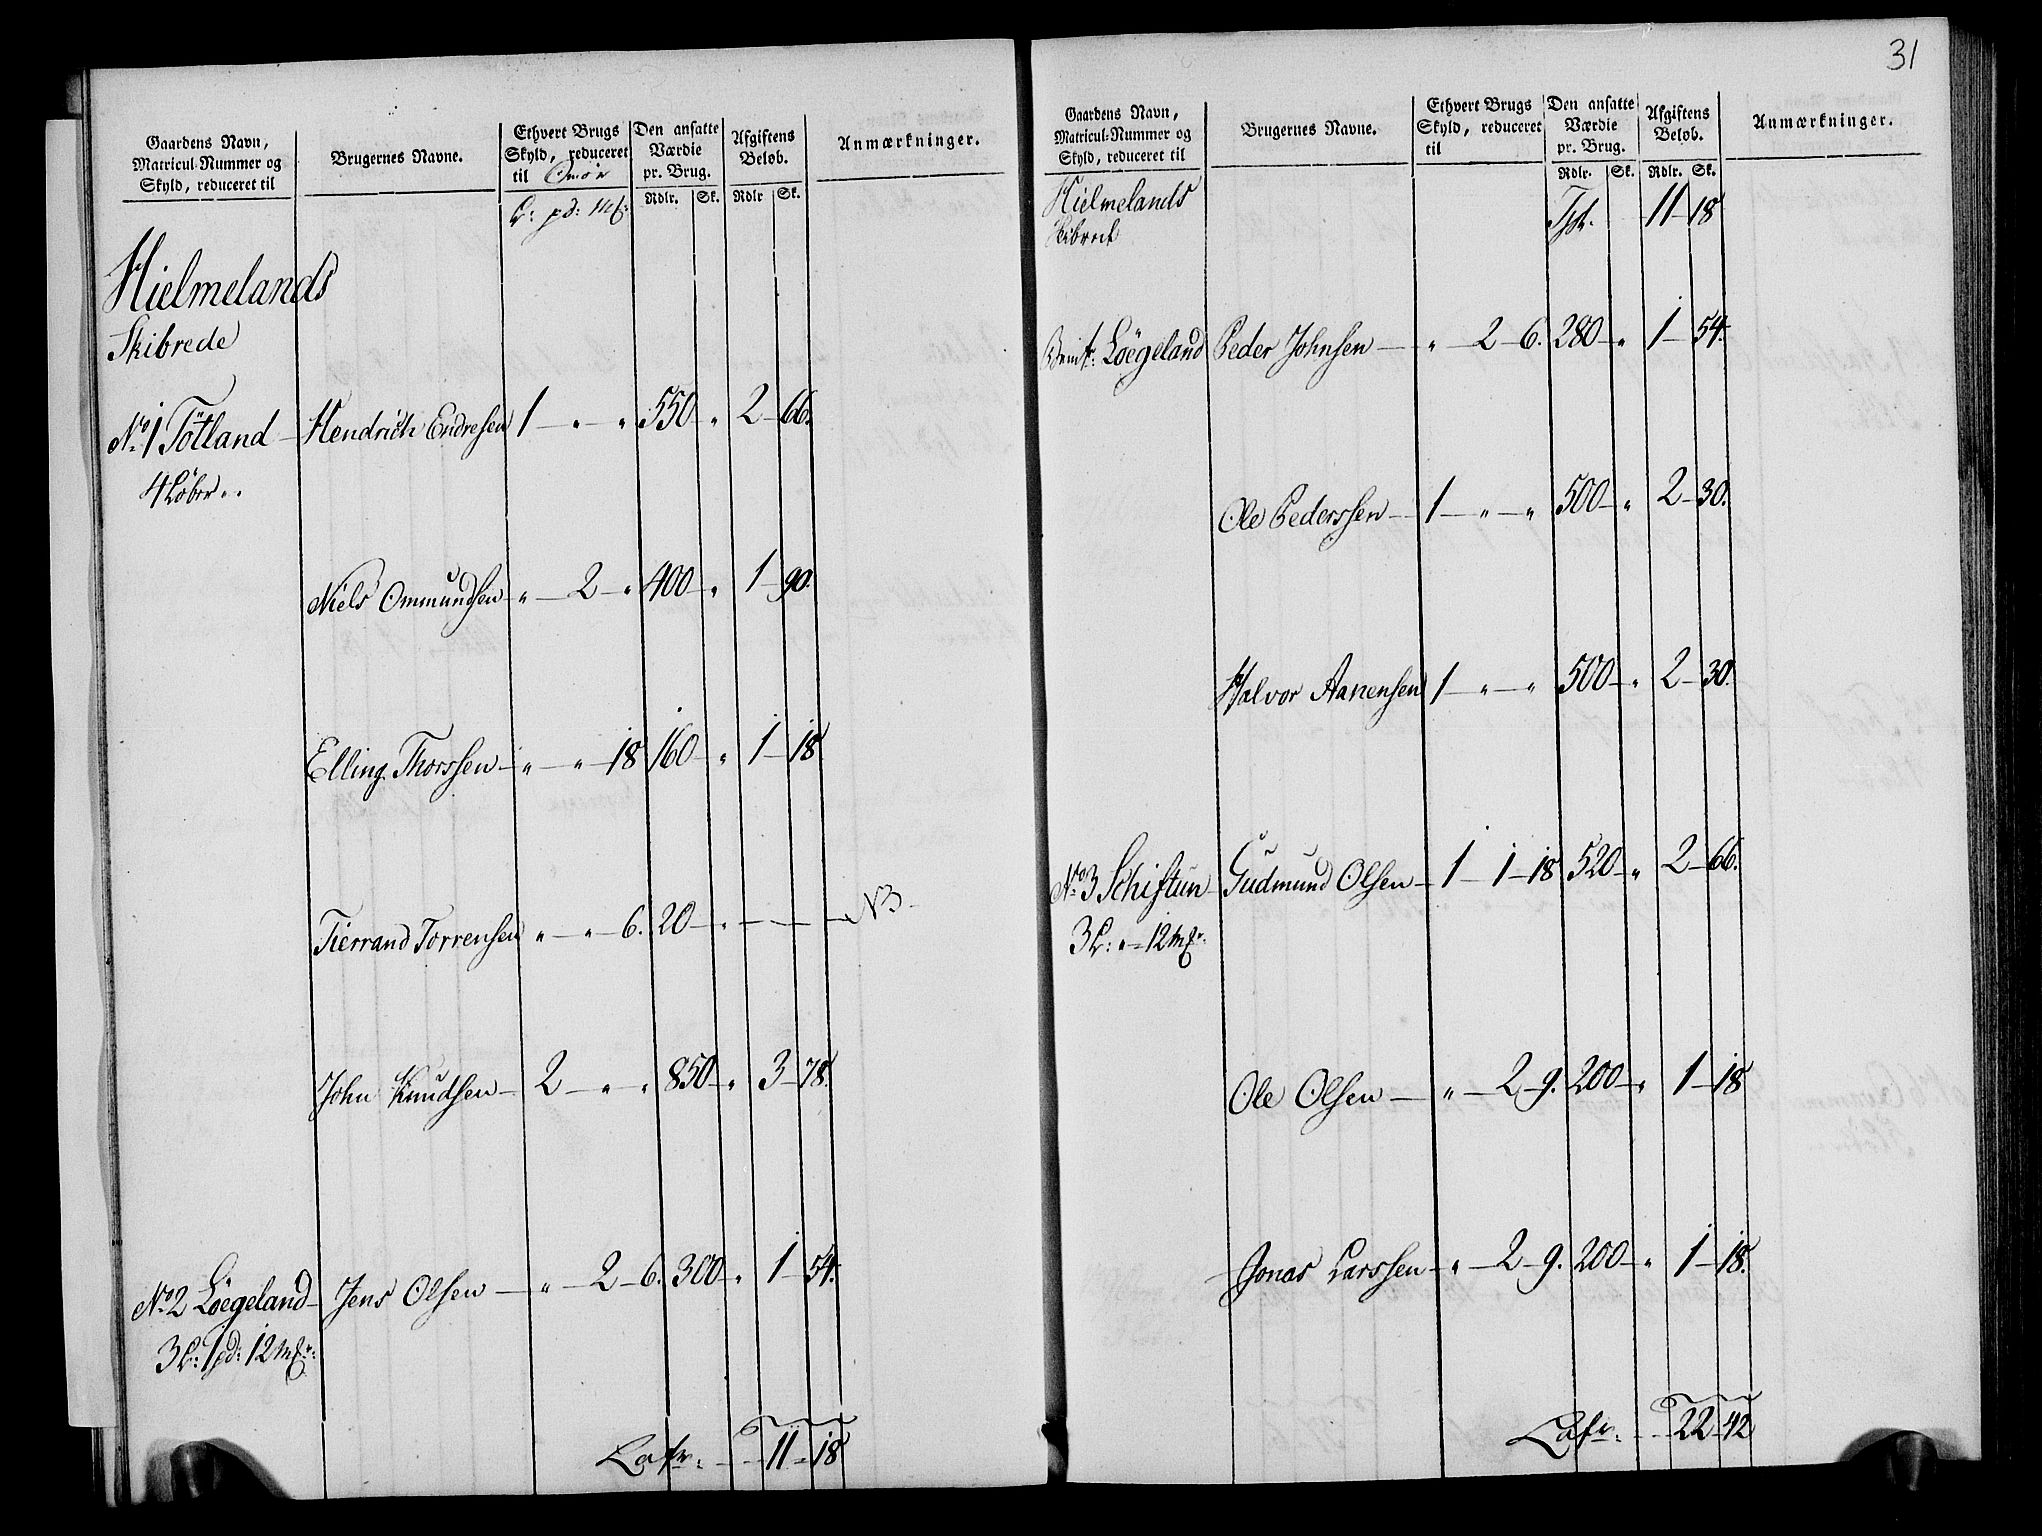 Gaardens Navn,
Matricul-Nummer og
Skyld, reduceret til
Brugernes Navne.
Ethvert Brugs
Skyld, reduceret
til Smør
Den ansatte
Værdie
pr. Brug.
Afgiftens
Beløb.
Anmærkninger.
L: pd: Mk:
Rdlr. Sk. Rdlr Sk.
Hielmelands
Skibrede
No 1 Tötland — Hendrich Endresen 1 — „ — „ 550 — „ 2 — 66.
4 Løber „ „
Niels Ommundsen „ — 2 — „ 400 — „ 1 — 90.
Elling Thorssen — „ — „ — 18 160 — „ 1 — 18
Tierrand Torrensen „ — „ — 6. 20 — „ — — — NB
John Knudsen — 2 — „ — „ 850 — „ 3 — 78.
No 2 Löegeland — Jens Olsen — „ — 2 — 6. 300 — „ 1 — 54.
3 L: 1 pd: 12 mk:
Lafr: — 11 — 18
31
Gaardens Navn,
Matricul-Nummer og
Skyld, reduceret til
Brugernes Navne.
Ethvert Brugs
Skyld, reduceret
til
Den ansatte
Værdie
pr. Brug.
Afgiftens
Beløb.
Anmærkninger.
Rdlr. Sk. Rdlr. Sk.
Hielmelands
Skibrede
Tpt. 11 — 18
Löegeland Peder Johnsen — „ — 2 — 6. 280 — „ 1 — 54.
Ole Pederssen — 1 — „ — „ 500 — „ 2 — 30.
Halvor Aanensen 1 — „ — „ 500 — „ 2 — 30.
No 3 Schiftun — Gudmund Olsen — 1 — 1 — 18 520 — „ 2 — 66.
3 L: „ — 12 mk:
Ole Olsen — „ — 2 — 9. 200 — „ 1 — 18
Jonas Larssen — „ — 2 — 9. 200 — „ 1 — 18.
Lafr: — 22 — 42